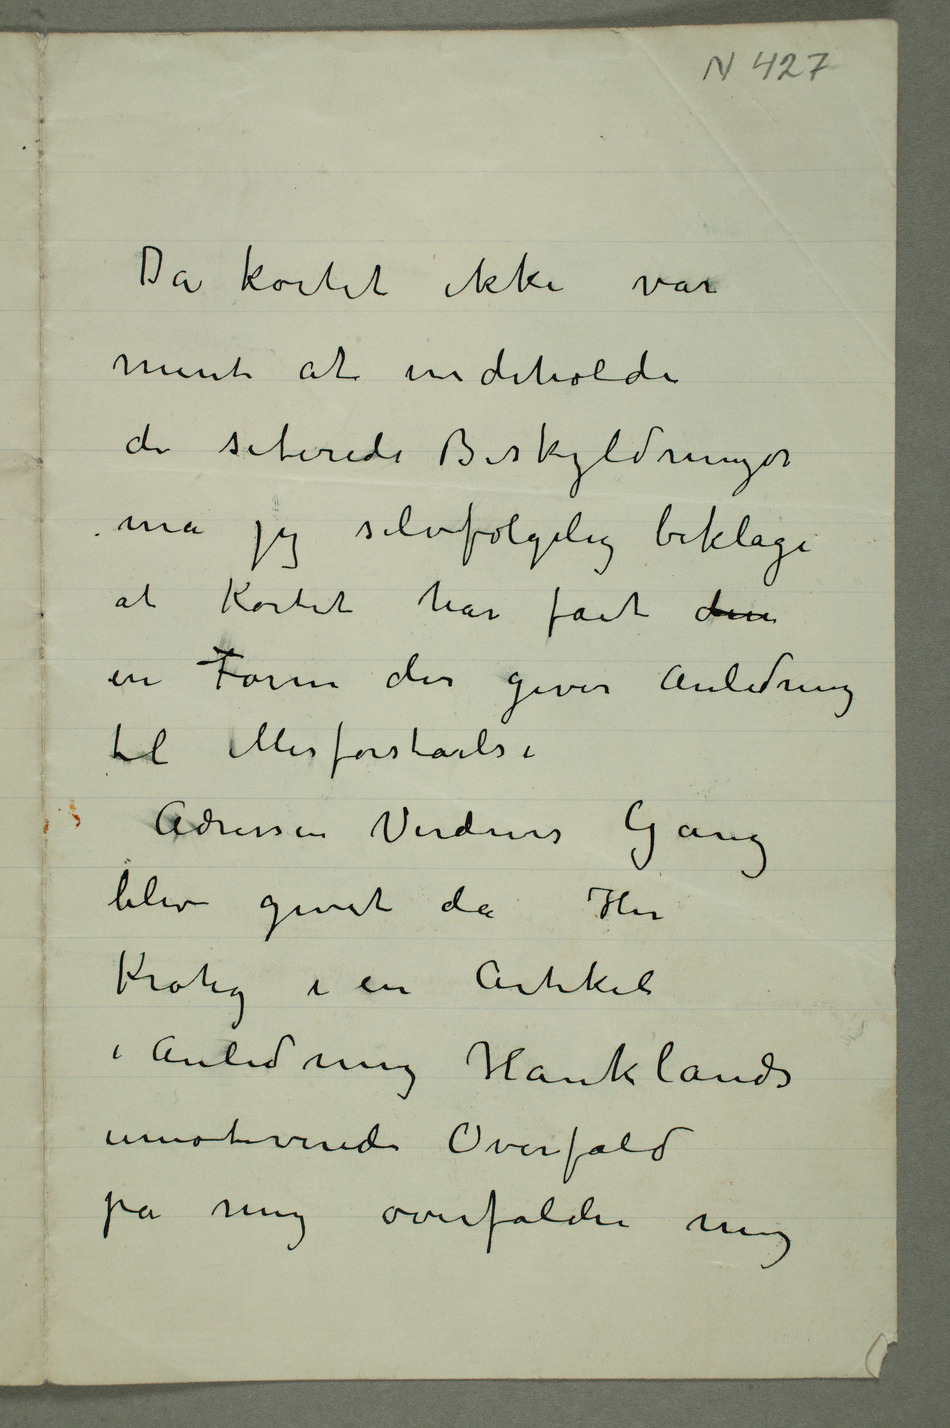 N 427
Da kortet ikke var
ment at indeholde
de siterede Beskyldninger
må jeg selvfølgelig beklage
at Kortet har fået den
en Form der giver Anledning
til Misforståelse
Adressen Verdens Gang
blev givet da Her
Krohg i en Artikel
i Anledning Hauklands
umotiverede Overfald
på mig overfalder mig